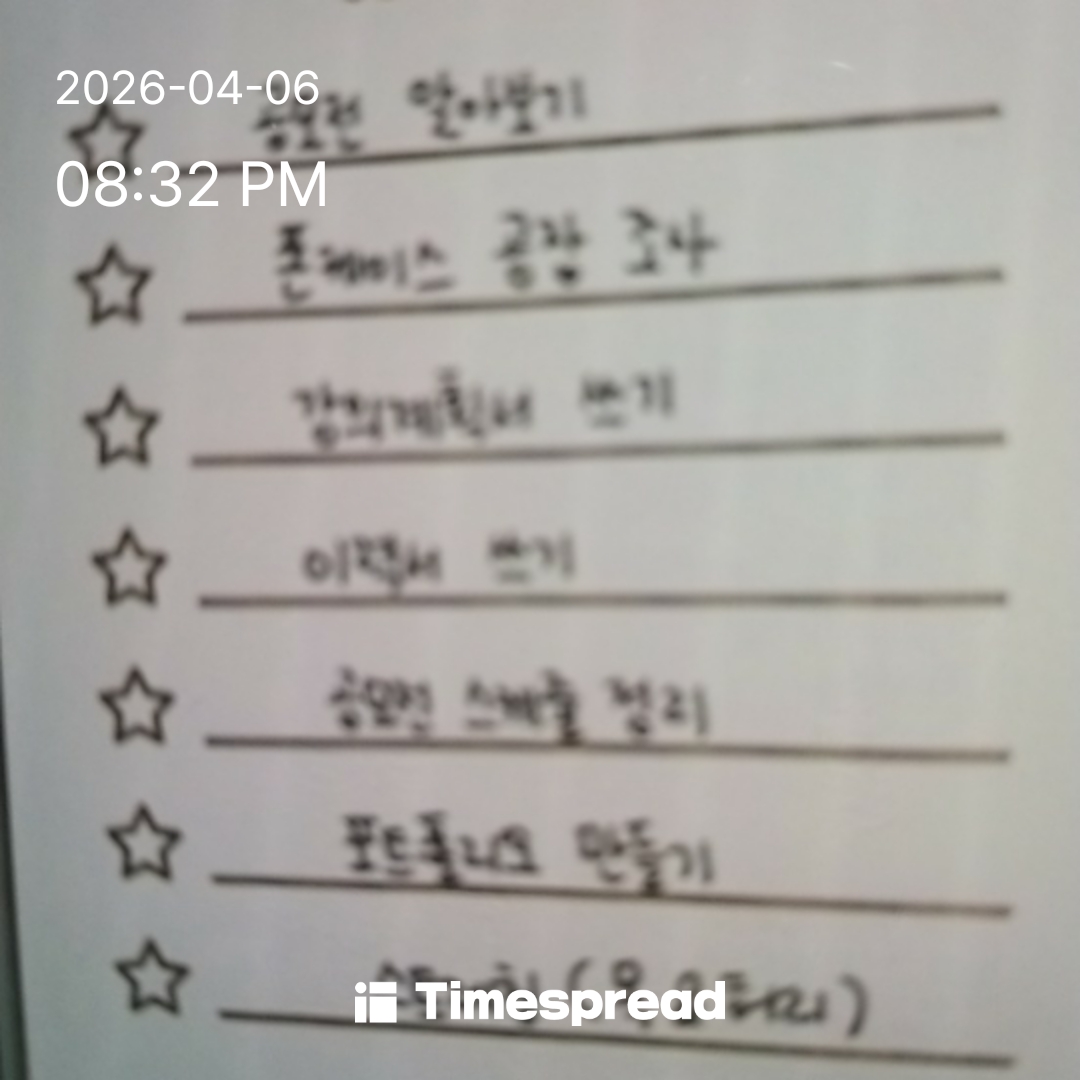 2026-04-06
공모전 알아보기
08:32 PM
폰케이스 공장 조사
강의계획서 쓰기
이력서 쓰기
공모전 스케줄 정리
포트폴리오 만들기
Timespread